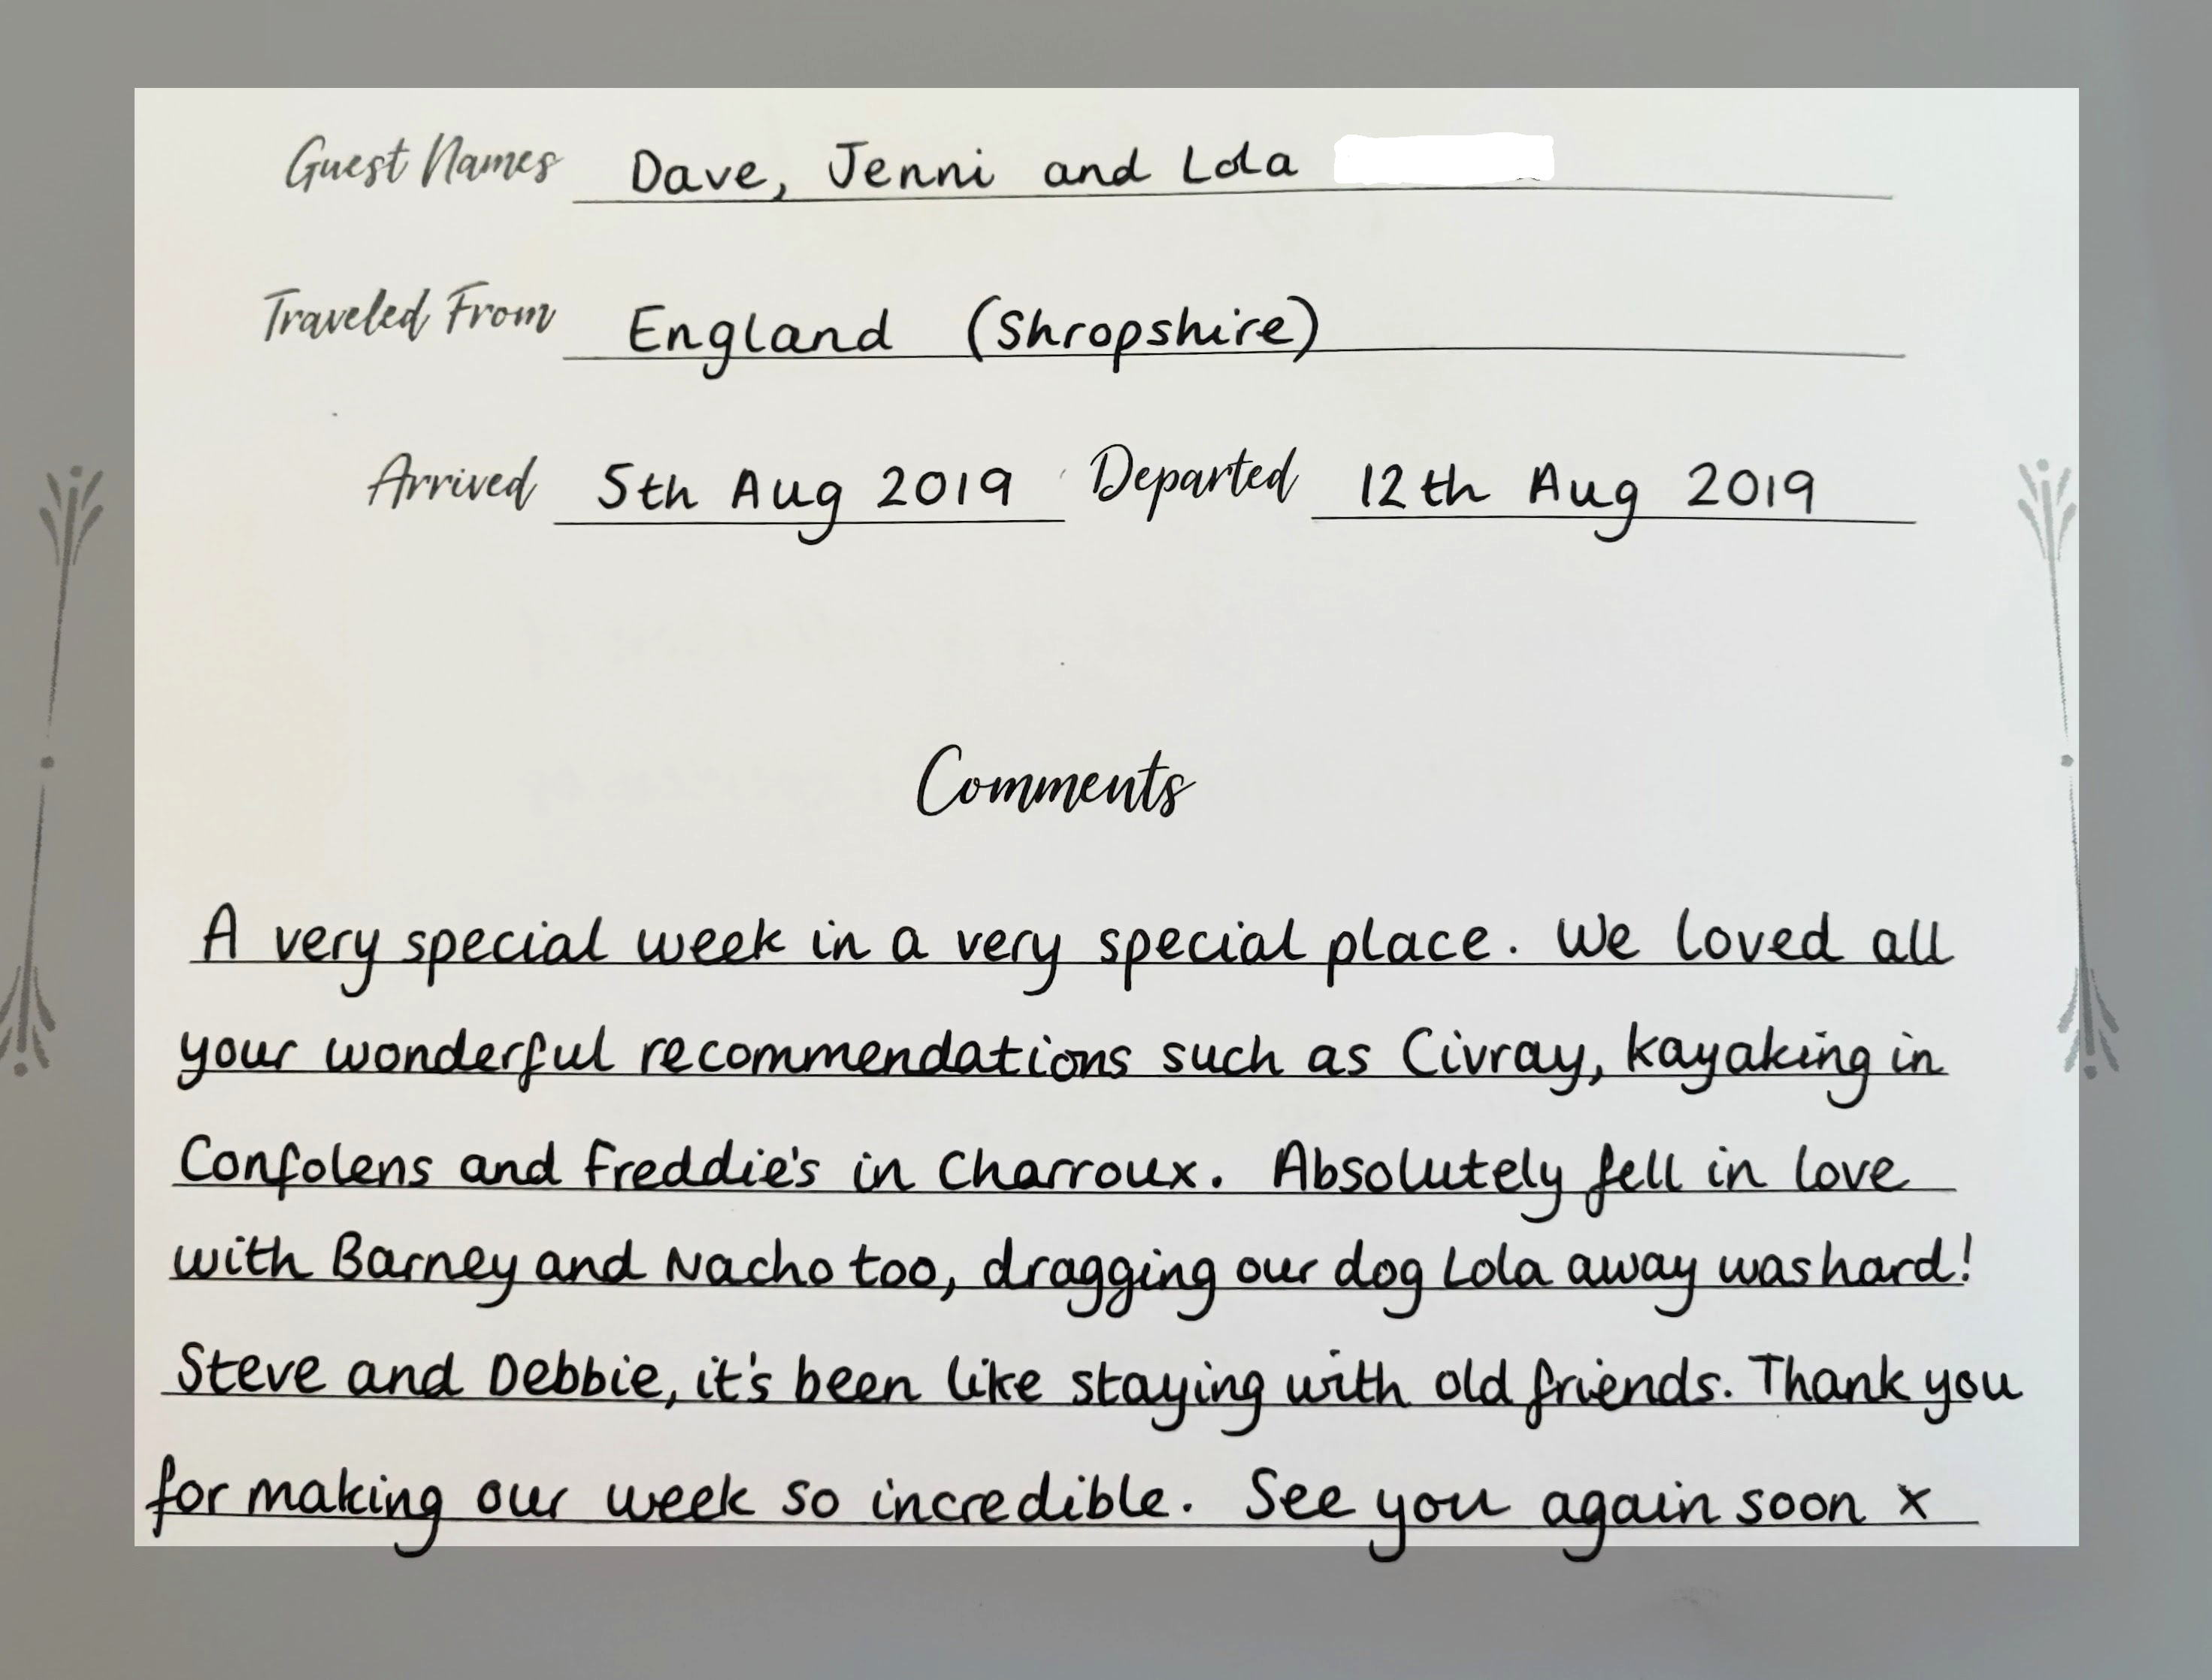 Guest Names Dave, Jenni and Lola
Traveled From England (Shropshire)
Arrived 5th Aug 2019 Departed 12th Aug 2019
Comments
A very special week in a very special place. We loved all
your wonderful recommendations such as Civray, kayaking in
Confolens and Freddie's in Charroux. Absolutely fell in love
with Barney and Nacho too, dragging our dog Lola away was hard!
Steve and Debbie, it's been like staying with old friends. Thank you
for making our week so incredible. See you again soon x